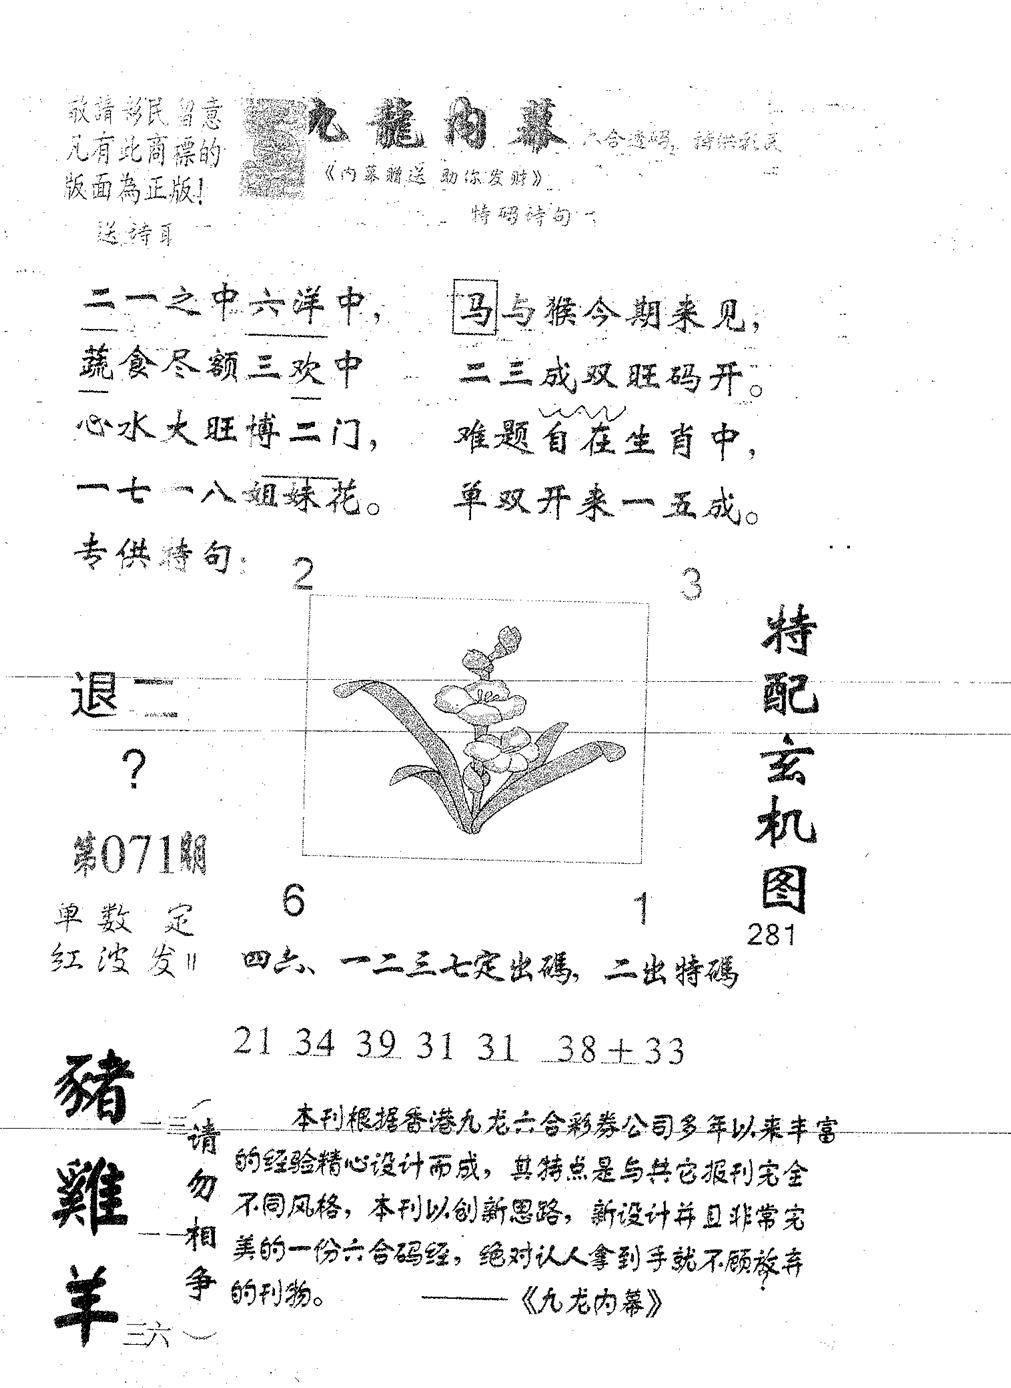 敬請彩民留意
凡有此商標的
版面為正版!
九龍內幕
六合透码,特供彩民
《内幕赠送 助你发财》
送诗
特码诗句
二一之中六洋中,
蔬食尽额三欢中
心水大旺博二门,
一七一八姐妹花。
马与猴今期来见,
二三成双旺码开。
难题自在生肖中,
单双开来一五成。
专供特句:
2
3
退二
?
第071期
单数 定
红波发
6
1
特配玄机图
281
四六、一二三七定出碼, 二出特碼
21 34 39 31 31 38+33
豬
一三
雞
一一
羊
三六
(请勿相争)
本刊根据香港九龙六合彩券公司多年以来丰富
的经验精心设计而成,其特点是与其它报刊完全
不同风格,本刊以创新思路,新设计并且非常完
美的一份六合码经,绝对认人拿到手就不顾放弃
的刊物。 ——《九龙内幕》